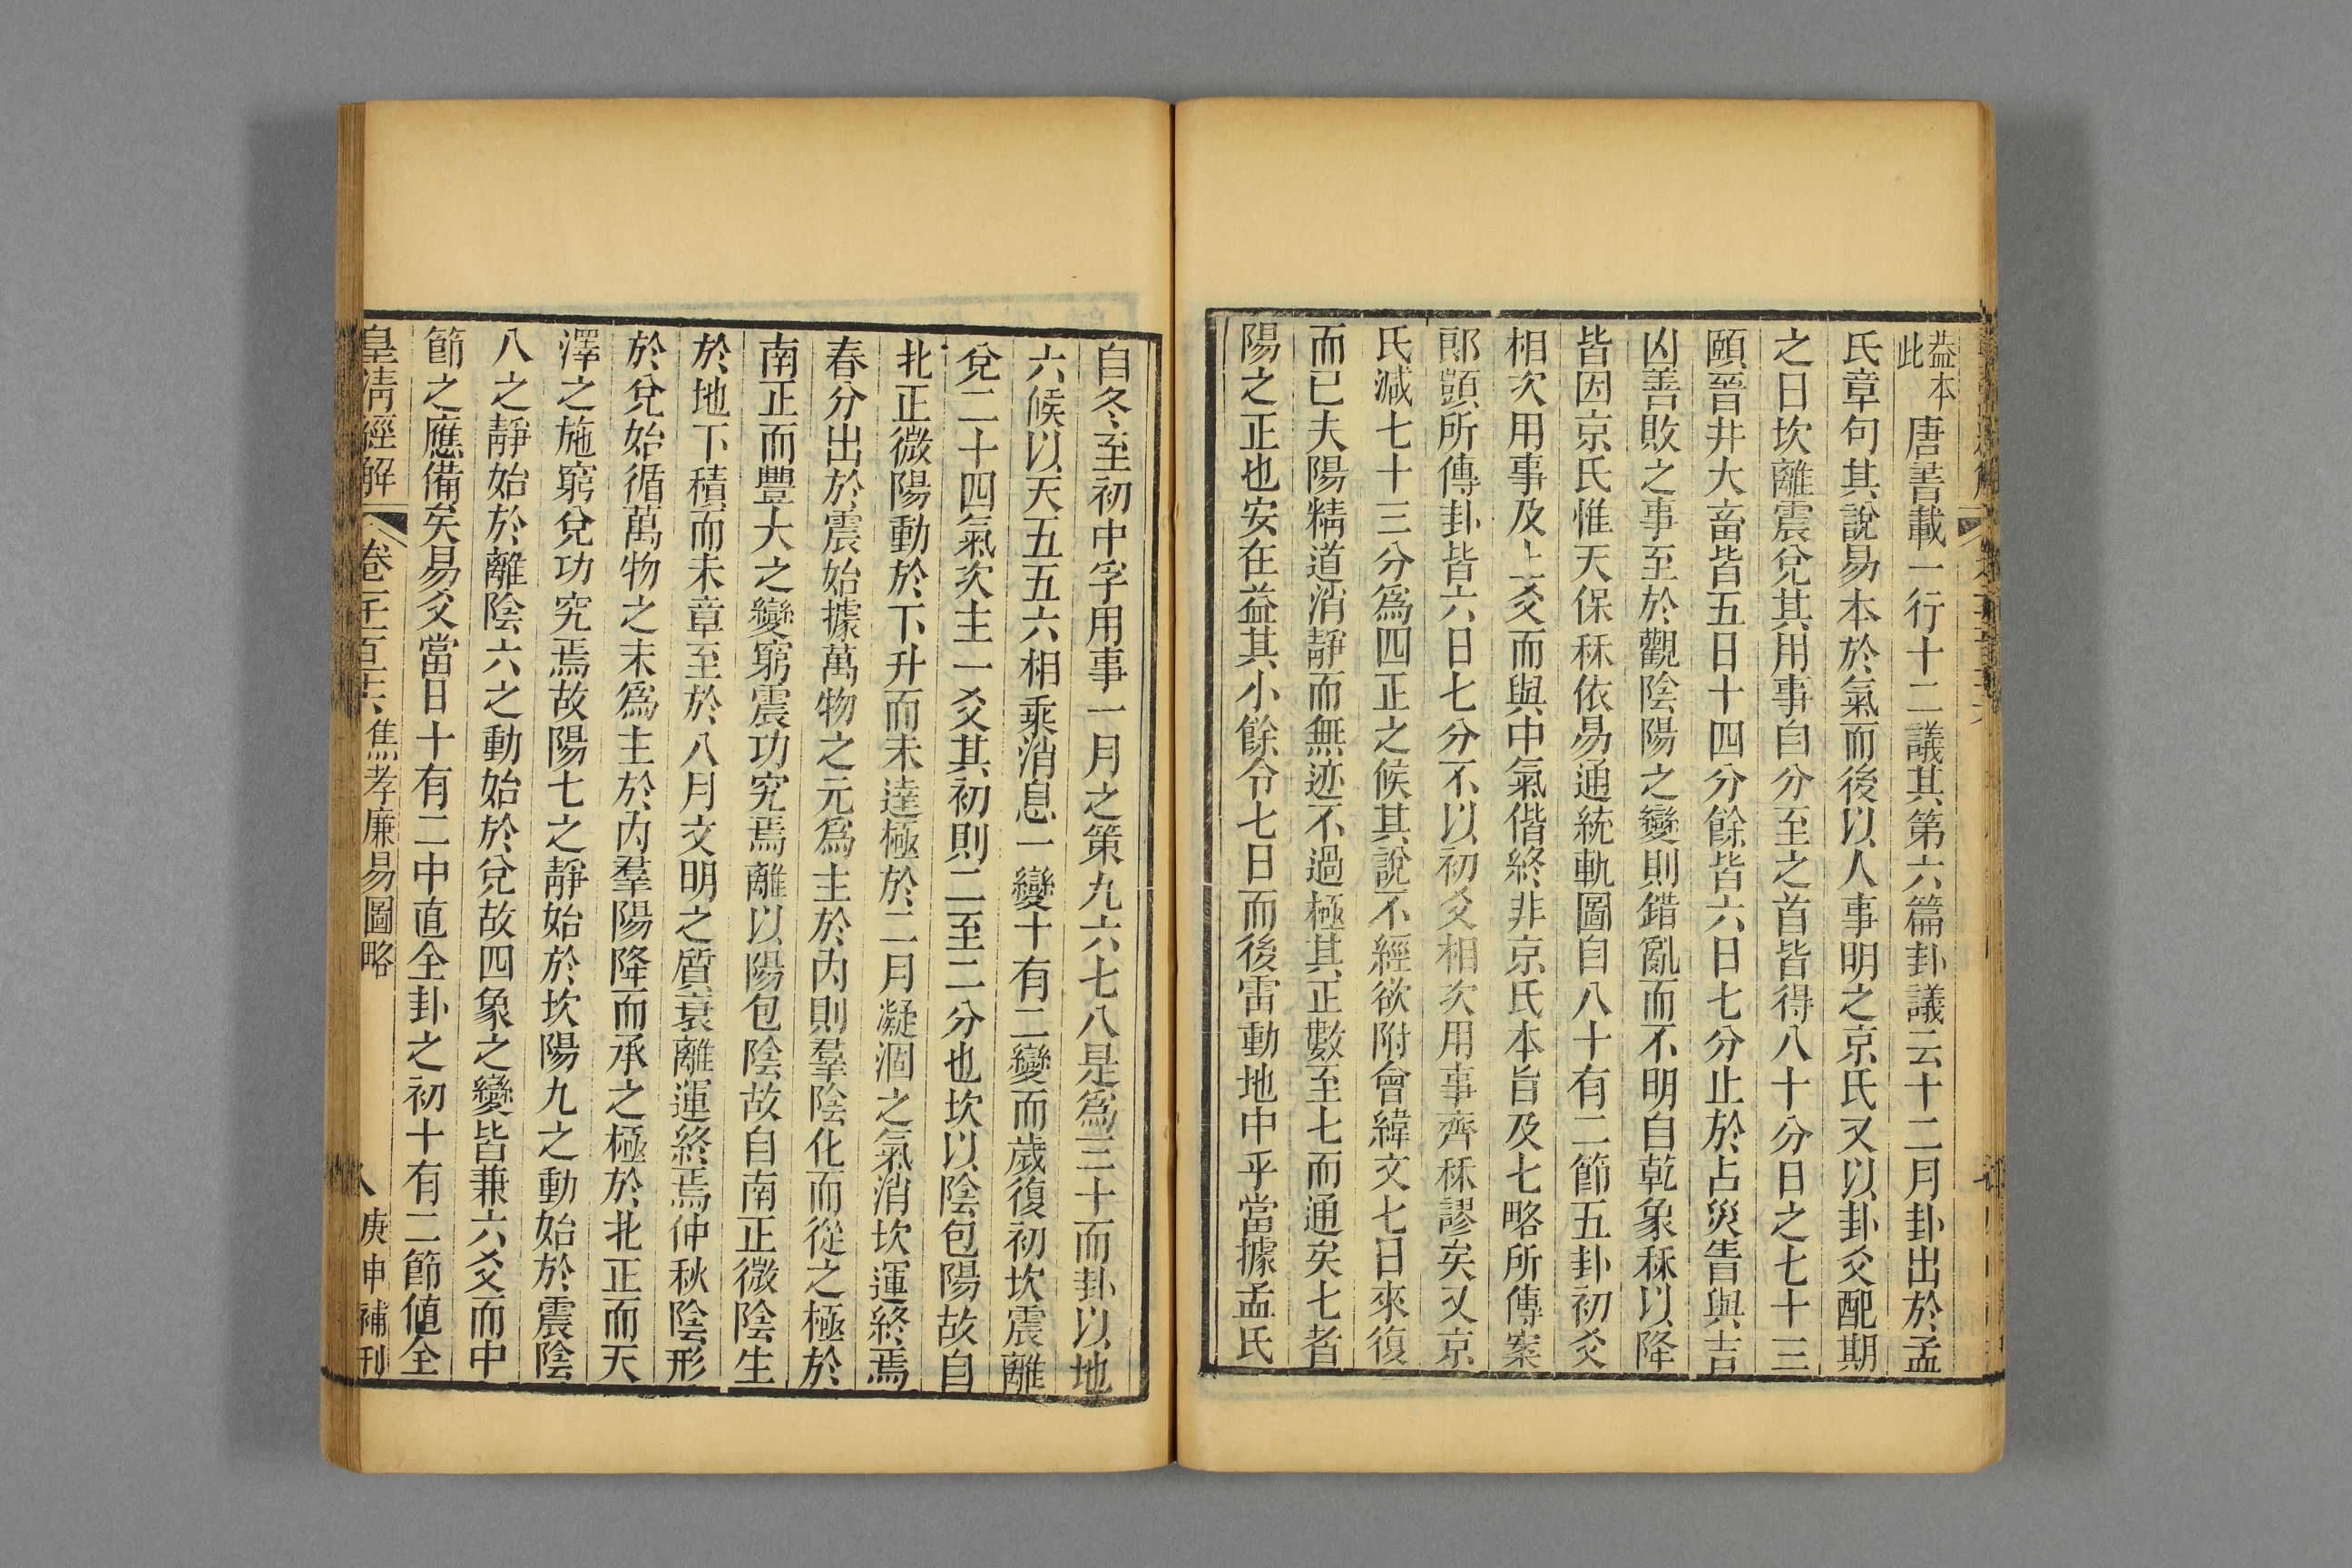 益本此唐書載一行十二議其第六篇卦議云十二月卦出於孟
氏章句其說易本於氣而後以人事明之京氏又以卦爻配期
之日坎離震兌其用事自分至之首皆得八十分日之七十三
頤晉井大畜皆五日十四分餘皆六日七分止於占災眚與吉
凶善敗之事至於觀陰陽之變則錯亂而不明自乾象秝以降
皆因京氏惟天保秝依易通統軌圖自八十有二節五卦初爻
相次用事及上爻而與中氣偕終非京氏本旨及七略所傳案
郎顗所傳卦皆六日七分不以初爻相次用事齊秝謬矣又京
氏減七十三分爲四正之候其說不經欲附會緯文七日來復
而已夫陽精道消靜而無迹不過極其正數至七而通矣七者
陽之正也安在益其小餘令七日而後雷動地中乎當據孟氏
自冬至初中孚用事一月之策九六七八是爲三十而卦以地
六候以天五五六相乘消息一變十有二變而歲復初坎震離
兌二十四氣次主一爻其初則二至二分也坎以陰包陽故自
北正微陽動於下升而未達極於二月凝涸之氣消坎運終焉
春分出於震始據萬物之元爲主於內則羣陰化而從之極於
南正而豐大之變窮震功究焉離以陽包陰故自南正微陰生
於地下積而未章至於八月文明之質衰離運終焉仲秋陰形
於兌始循萬物之末爲主於內羣陽降而承之極於北正而天
澤之施窮兌功究焉故陽七之靜始於坎陽九之動始於震陰
八之靜始於離陰六之動始於兌故四象之變皆兼六爻而中
節之應備矣易爻當日十有二中直全卦之初十有二節値全
皇淸經解 卷一千一百十六 焦孝廉易圖略 八 庚申補刊